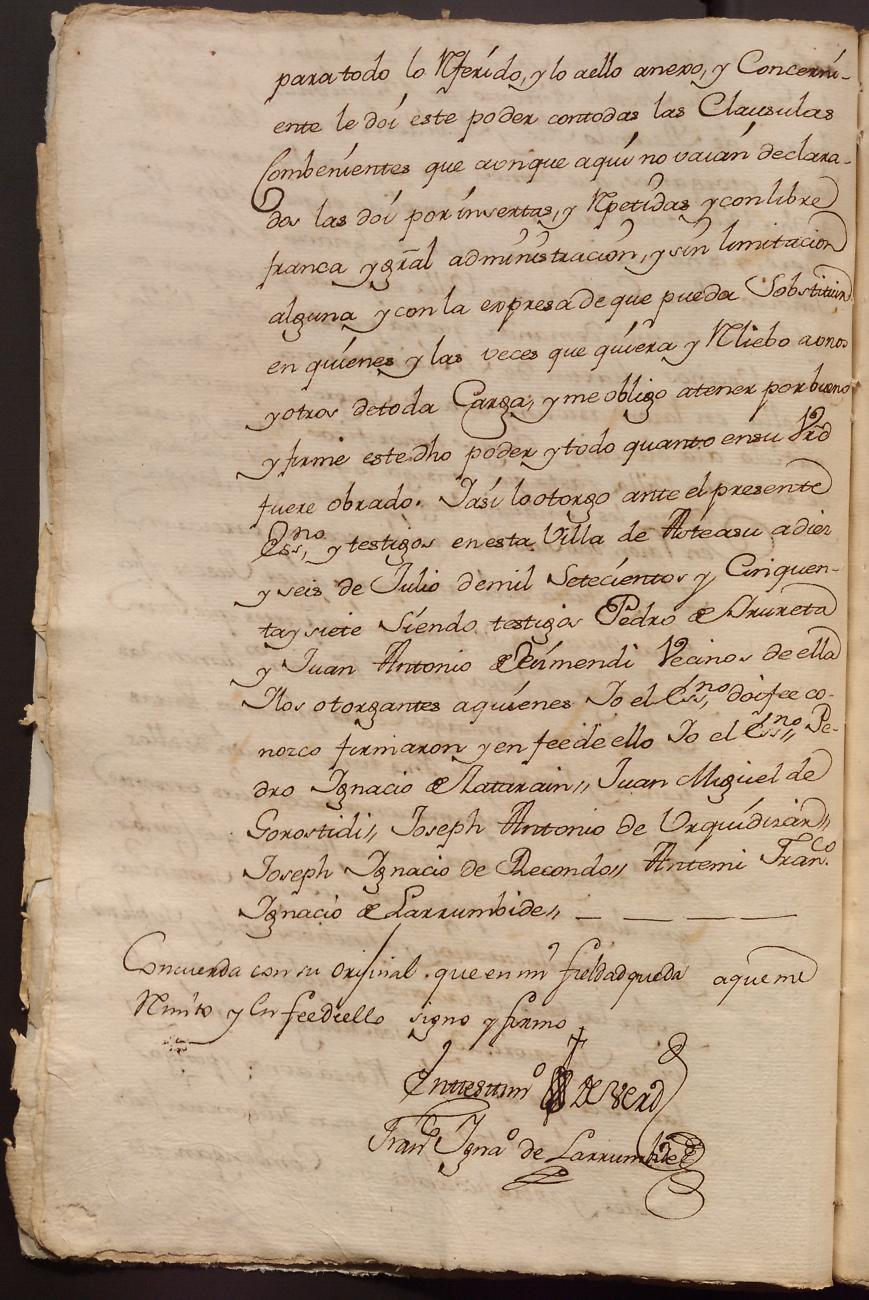 para todo lo Rferído, y lo aello anexo, y Concerní-
ente le doí este poder contodas las Clausulas
Combeníentes que aunque aquí no vaían declara-
das las doí por ínsertas, y Rpetídas y con libre
franca y gral admínístracíon, y sín limitacíon
alguna y con la expresa de que pueda Sobstituir
en quíenes y las veces que quíera y Rliebo aunos
y otros detoda Carga, y me obligo atener por bueno
y firme este dho poder y todo quanto ensu Vrd
fuere obrado. Iasí lo otorgo ante el presente
Essno, y testigos en esta Villa de Asteasu a diez
y seis de Julio demil Setecientos y Cinquen-
ta y siete Síendo testigos Pedro de Irureta
y Juan Antonio de Eímendi Vecinos de ella
Ilos otorgantes aquíenes Io el Essno, doífee co-
nozco firmaron y en feede ello Io el Essno,, Pe-
dro Ignacio de Atarain,, Juan Miguel de
Gorostidi,, Joseph Antonio de Urquídizar,,
Joseph Ignacio de Recondo,, Antemi Franco
Ignacio de Larrumbide,, — — — —
Concuerda con su original que en mí fieldad queda aqueme
Rmito y En feedeello signo y firmo
Entestimo de Verd
Franco Ignao de Larrumbide